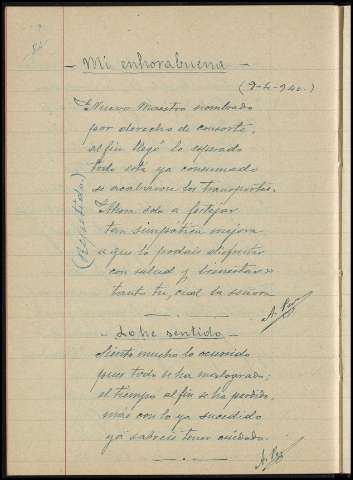 - Mi enhorabuena -
(9-4-940.)
Nuevo Maestro nombrado
por derecho de consorte,
al fin llegó lo esperado
todo está ya consumado
se acabaron los transportes.
Ahora solo a festejar
tan simpática mejora
a que la podais disfrutar
con salud y bienestar
tanto tu, cual la señora
(Repetida)
A.
- Lo he sentido -
Siento mucho lo ocurrido
pues todo se ha malogrado;
el tiempo al fin se ha perdido,
mas con lo ya sucedido
ya sabreis tener cuidado.
A.